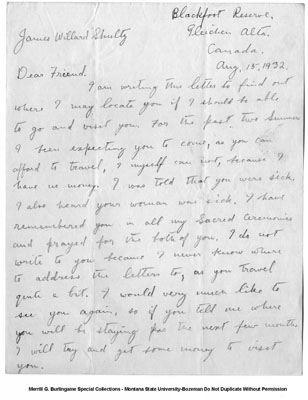 Blackfoot Reserve.
James Willard Shultz
Gleichen Alta.
Canada.
Aug, 15, 1932.
Dear Friend.
I am writing this letter to find out
where I may locate you if I should be able
to go and visit you. For the past two summer
I been expecting you to come, as you can
afford to travel, I myself can not, because I
have no money. I was told that you were sick,
I also heard your woman was sick. I have
remembered you in all my Sacred Ceremonies
and prayed for the both of you. I do not
write to you because I never know where
to address the letters to, as you travel
quite a bit. I would very much like to
see you again, so if you tell me where
you will be staying for the next few months,
I will try and get some money to visit
you.
Merrill G. Burlingame Special Collections - Montana State University-Bozeman Do Not Duplicate Without Permission